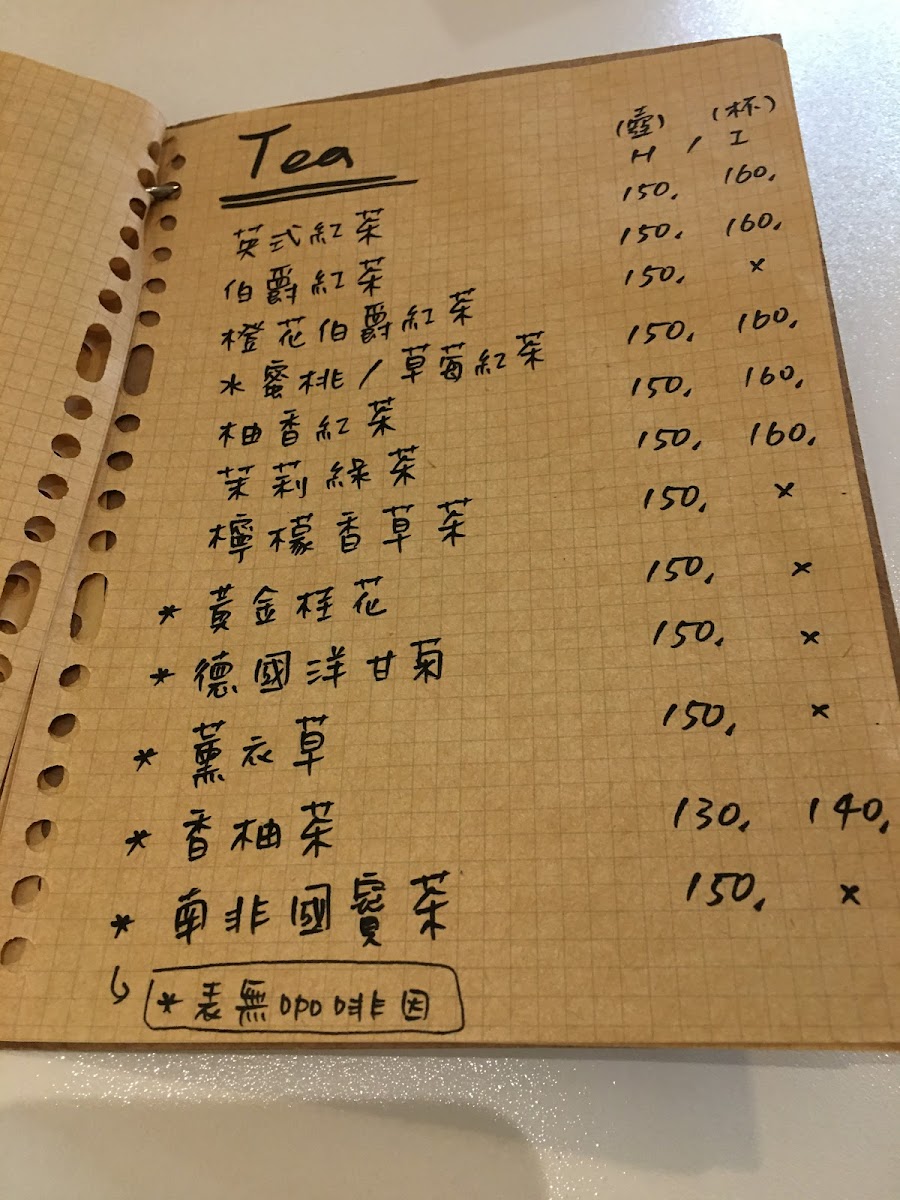 Tea (壺) (杯)
H / I
英式紅茶 150. 160.
伯爵紅茶 150. 160.
橙花伯爵紅茶 150. x
水蜜桃/草莓紅茶 150. 160.
柚香紅茶 150. 160.
茉莉綠茶 150. 160.
檸檬香草茶 150. x
* 黃金桂花 150. x
* 德國洋甘菊 150. x
* 薰衣草 150. x
* 香柚茶 130. 140.
* 南非國寶茶 150. x
* 表無咖啡因